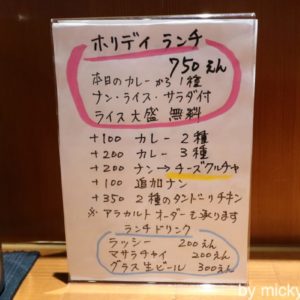 ホリデイ ランチ
750えん
本日のカレーから1種
ナン・ライス・サラダ付
ライス大盛 無料
+100 カレー 2種
+200 カレー 3種
+200 ナン→チーズクルチャ
+100 追加ナン
+350 2種のタンドリチキン
※アラカルトオーダーも承ります
ランチドリンク
ラッシー 200えん
マサラチャイ 200えん
グラス生ビール 300えん
by micky